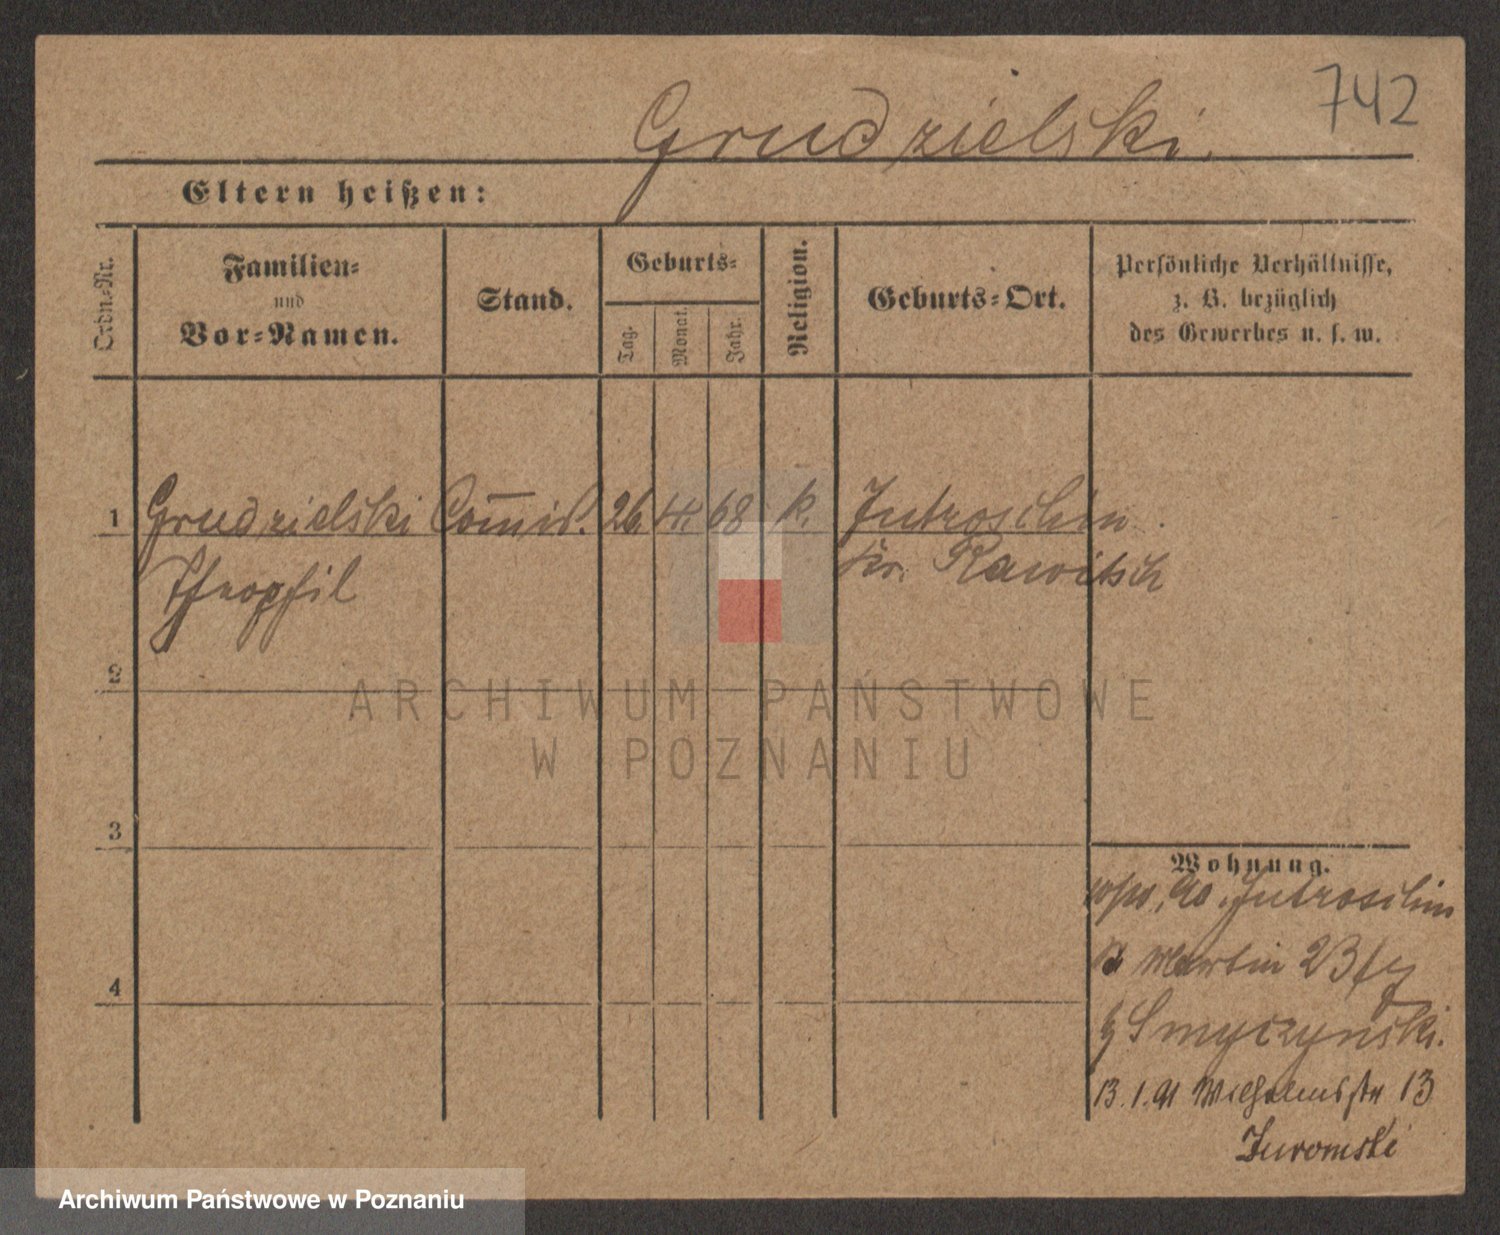 742
Grudzielski.
Eltern heißen:
Ordn.-Nr.
Familien-
und
Vor-Namen.
Stand.
Geburts-
Tag.
Monat.
Jahr.
Religion.
Geburts-Ort.
Persönliche Verhältnisse,
z. B. bezüglich
des Gewerbes u. s. w.
1 Grudzielski Com̅is. 26. 68 k. Jutroschin
Theophil Kr. Rawitsch
2
ARCHIWUM PAŃSTWOWE
W POZNANIU
3
Wohnung.
90. Jutroschin
St Martin 23
Smyczynski.
13.1.91 Wilhelmsstr 13
Archiwum Państwowe w Poznaniu
4